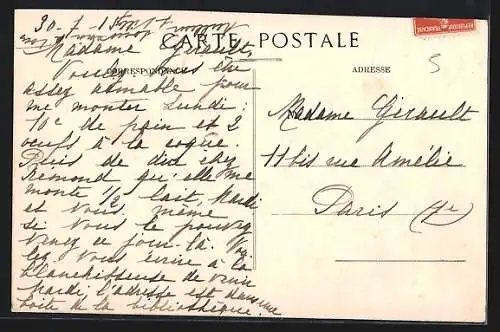 30-7-15
CARTE POSTALE
CORRESPONDANCE
ADRESSE
REPUBLIQUE FRANÇAISE
5
Madame Girault,
Voulez vous être
assez aimable pour
me monter Lundi :
10c de pain et 2
oeufs à la coque.
Puis de dire chez
Remond qu'elle me
monte 1/2 lait, Mardi
et vous, même
si vous le pouvez
venez ce jour-là. Vou
lez vous écrire à la
blanchisseuse de venir
mardi l'adresse est dans une
boîte de la bibliothèque.
Madame Girault
11 bis rue Amélie
Paris (7e)